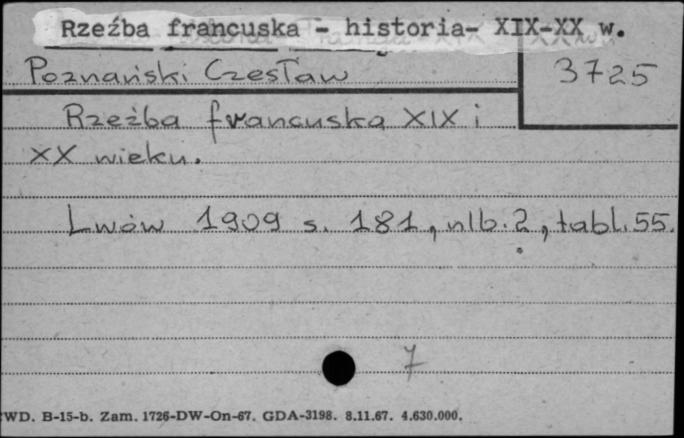 Rzeźba francuska - historia- XIX-XX w.
Poznański Czesław
3725
Rzeźba francuska XIX i
XX wieku.
Lwów 1909 s. 181, nlb. 2, tabl. 55.
7
WD. B-15-b. Zam. 1726-DW-On-67. GDA-3198. 8.11.67. 4.630.000.